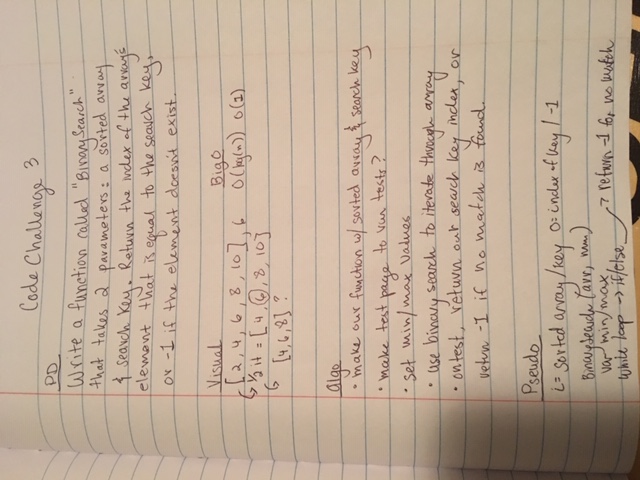 Code Challenge 3
PD
Write a function called "BinarySearch"
that takes 2 parameters: a sorted array
& search key. Return the index of the array's
element that is equal to the search key,
or -1 if the element doesn't exist.
Visual BigO
[2, 4, 6, 8, 10], 6 O(log(n)) O(1)
1/2 it = [4, 6, 8, 10]
[4, 6, 8] ?
algo
• make our function w/ sorted array & search key
• make test page to run tests?
• set min/max values
• use binary search to iterate through array
• on test, return our search key index, or
return -1 if no match is found.
Pseudo
i= sorted array/key O= index of key / -1
BinarySearch (arr, num)
var min/max
while loop → if/else → return -1 for no match